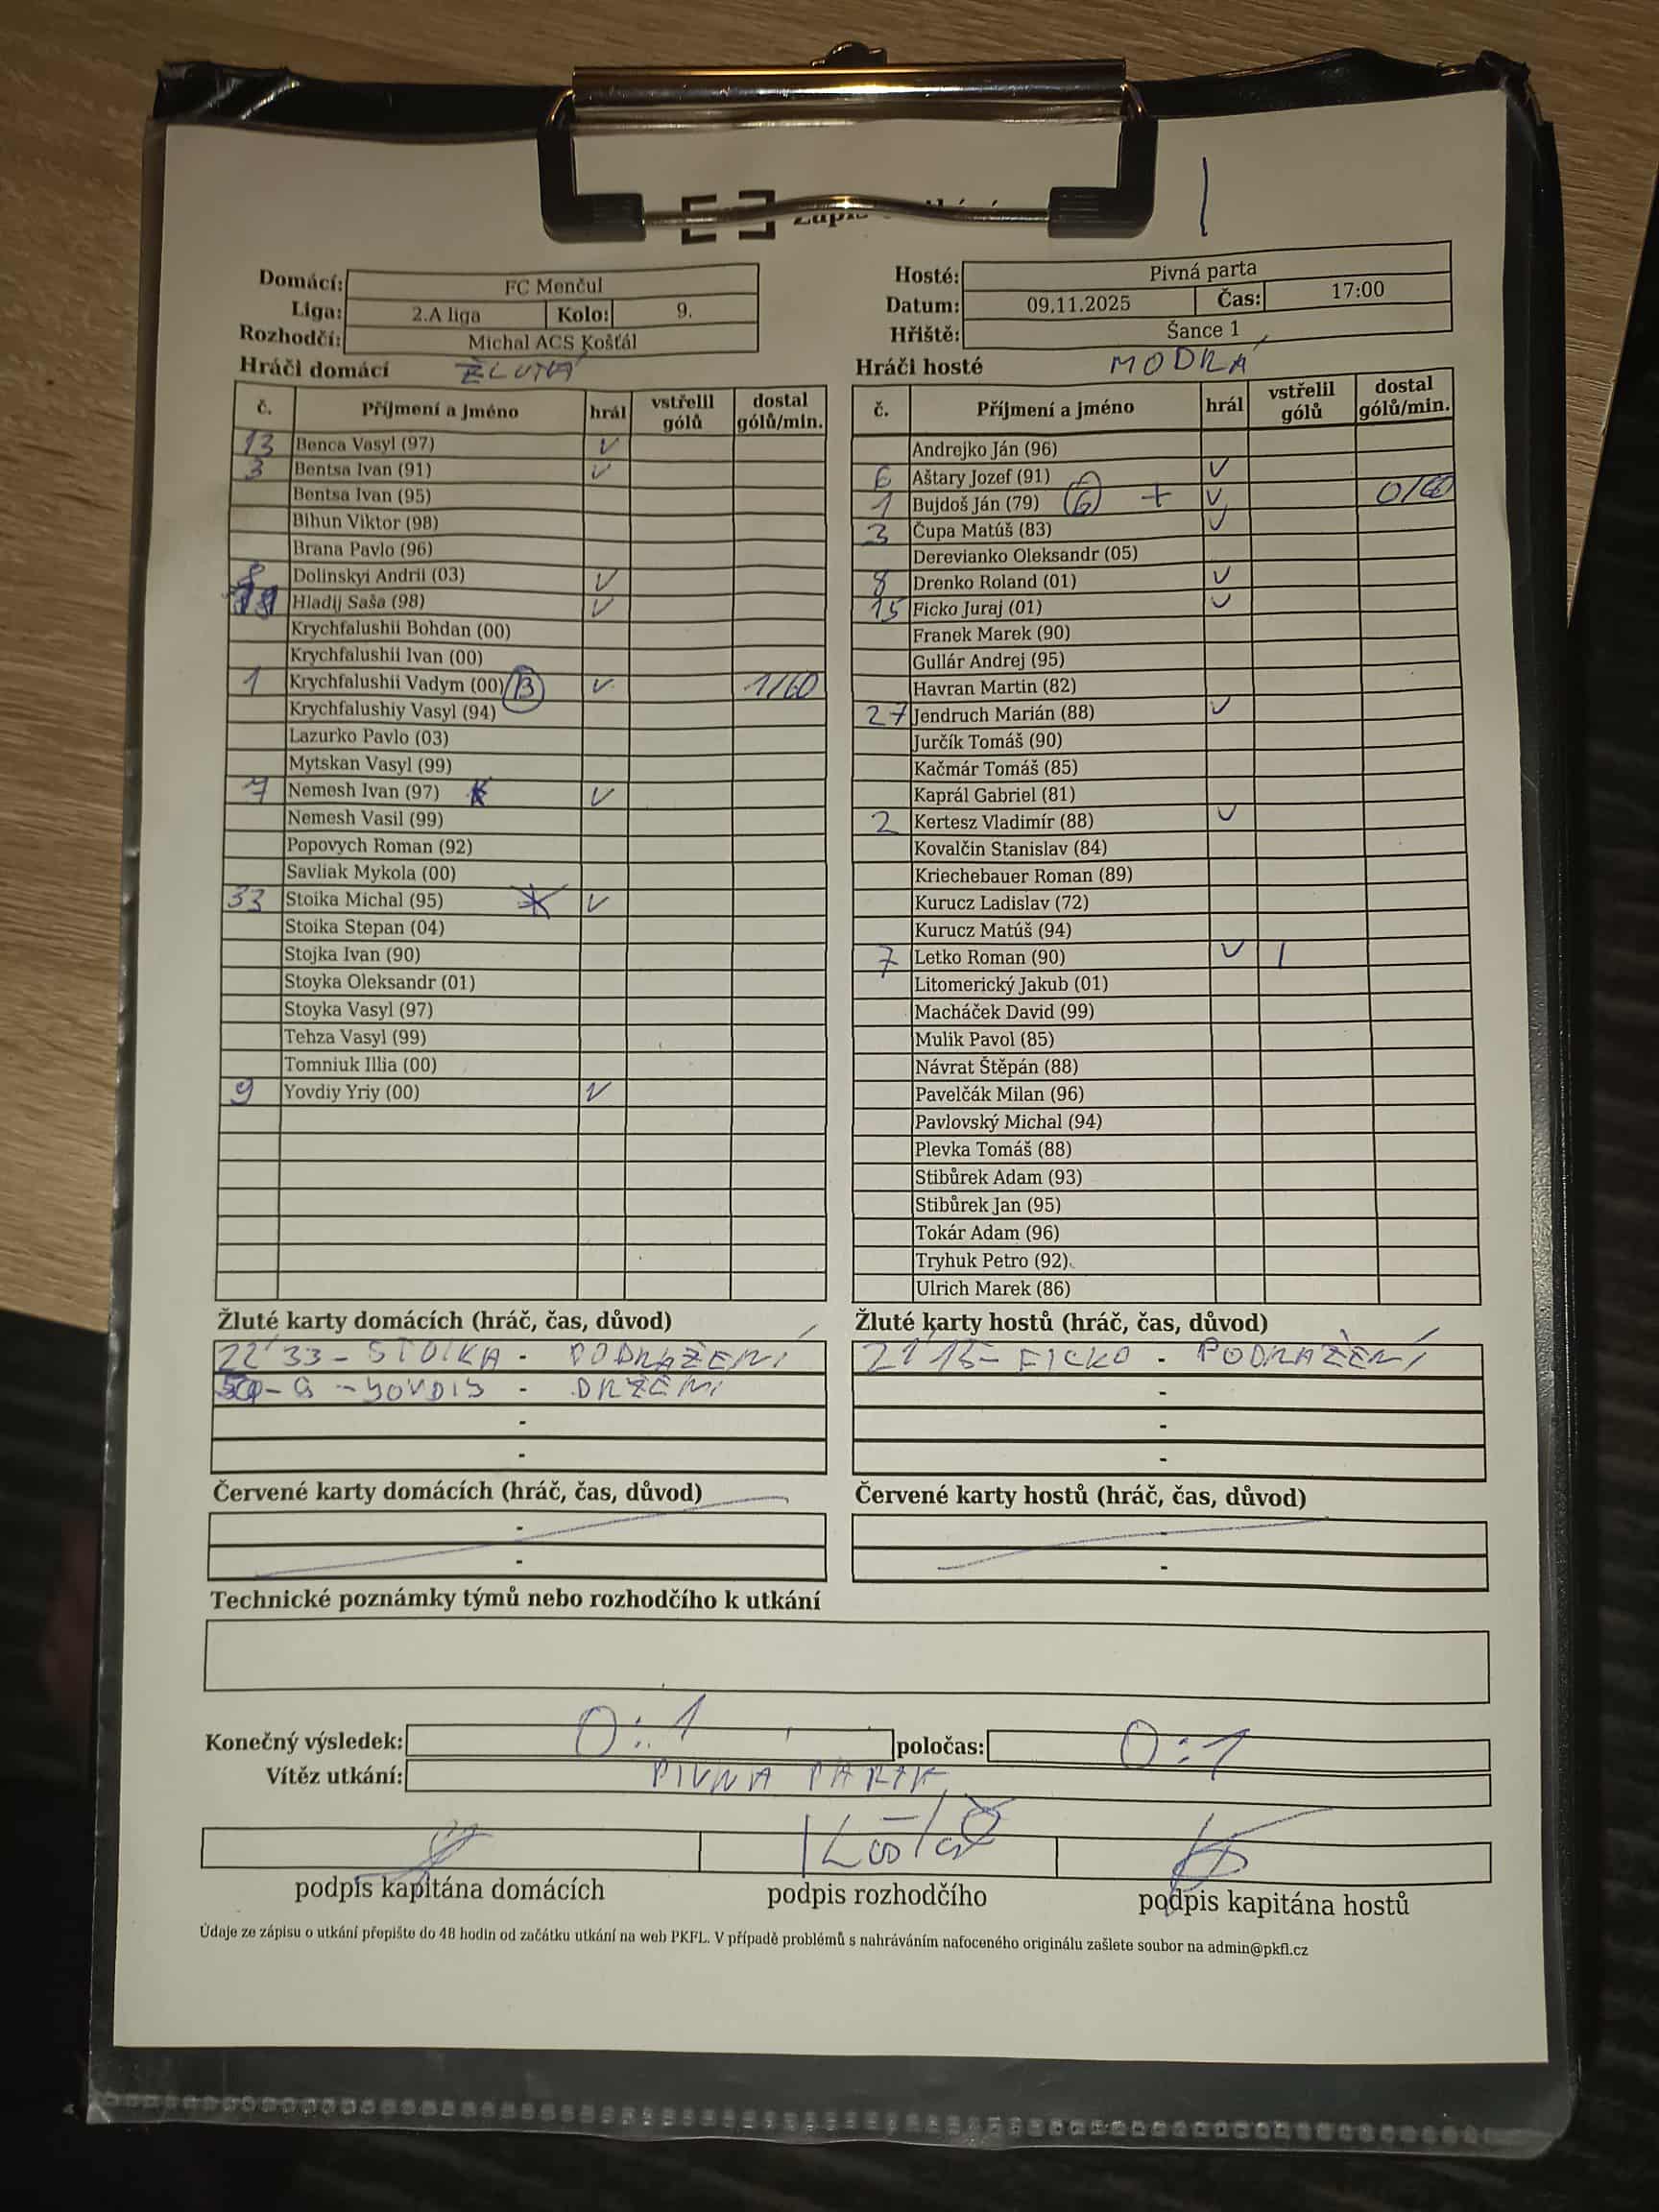 Domácí: FC Menčul
Liga: 2.A liga Kolo: 9.
Rozhodčí: Michal ACS Košťál
Hosté: Pivná parta
Datum: 09.11.2025 Čas: 17:00
Hřiště: Šance 1
Hráči domácí ŽLUTÁ
č. Příjmení a jméno hrál vstřelil gólů dostal gólů/min.
13 Benca Vasyl (97) V
3 Bentsa Ivan (91) V
Bentsa Ivan (95)
Bihun Viktor (98)
Brana Pavlo (96)
8 Dolinskyi Andrii (03) V
Hladij Saša (98) V
Krychfalushii Bohdan (00)
Krychfalushii Ivan (00)
1 Krychfalushii Vadym (00) B V 1/60
Krychfalushiy Vasyl (94)
Lazurko Pavlo (03)
Mytskan Vasyl (99)
7 Nemesh Ivan (97) V
Nemesh Vasil (99)
Popovych Roman (92)
Savliak Mykola (00)
33 Stoika Michal (95) V
Stoika Stepan (04)
Stojka Ivan (90)
Stoyka Oleksandr (01)
Stoyka Vasyl (97)
Tehza Vasyl (99)
Tomniuk Illia (00)
9 Yovdiy Yriy (00) V
Hráči hosté MODRÁ
č. Příjmení a jméno hrál vstřelil gólů dostal gólů/min.
Andrejko Ján (96)
6 Aštary Jozef (91) V
1 Bujdoš Ján (79) G + V 0/60
3 Čupa Matúš (83) V
Derevianko Oleksandr (05)
8 Drenko Roland (01) V
15 Ficko Juraj (01) V
Franek Marek (90)
Gullár Andrej (95)
Havran Martin (82)
27 Jendruch Marián (88) V
Jurčík Tomáš (90)
Kačmár Tomáš (85)
Kaprál Gabriel (81)
2 Kertesz Vladimír (88) V
Kovalčin Stanislav (84)
Kriechebauer Roman (89)
Kurucz Ladislav (72)
Kurucz Matúš (94)
7 Letko Roman (90) V 1
Litomerický Jakub (01)
Macháček David (99)
Mulik Pavol (85)
Návrat Štěpán (88)
Pavelčák Milan (96)
Pavlovský Michal (94)
Plevka Tomáš (88)
Stibůrek Adam (93)
Stibůrek Jan (95)
Tokár Adam (96)
Tryhuk Petro (92)
Ulrich Marek (86)
Žluté karty domácích (hráč, čas, důvod)
22' 33 - STOIKA - PODRAŽENÍ
9 - YOVDIY - DRŽENÍ
-
-
Žluté karty hostů (hráč, čas, důvod)
21' 15 - FICKO - PODRAŽENÍ
-
-
-
Červené karty domácích (hráč, čas, důvod)
-
-
Červené karty hostů (hráč, čas, důvod)
-
-
Technické poznámky týmů nebo rozhodčího k utkání
Konečný výsledek: 0:1 poločas: 0:1
Vítěz utkání: PIVNA PARTA
podpis kapitána domácích
podpis rozhodčího
podpis kapitána hostů
Údaje ze zápisu o utkání přepište do 48 hodin od začátku utkání na web PKFL. V případě problémů s nahráváním nafoceného originálu zašlete soubor na admin@pkfl.cz